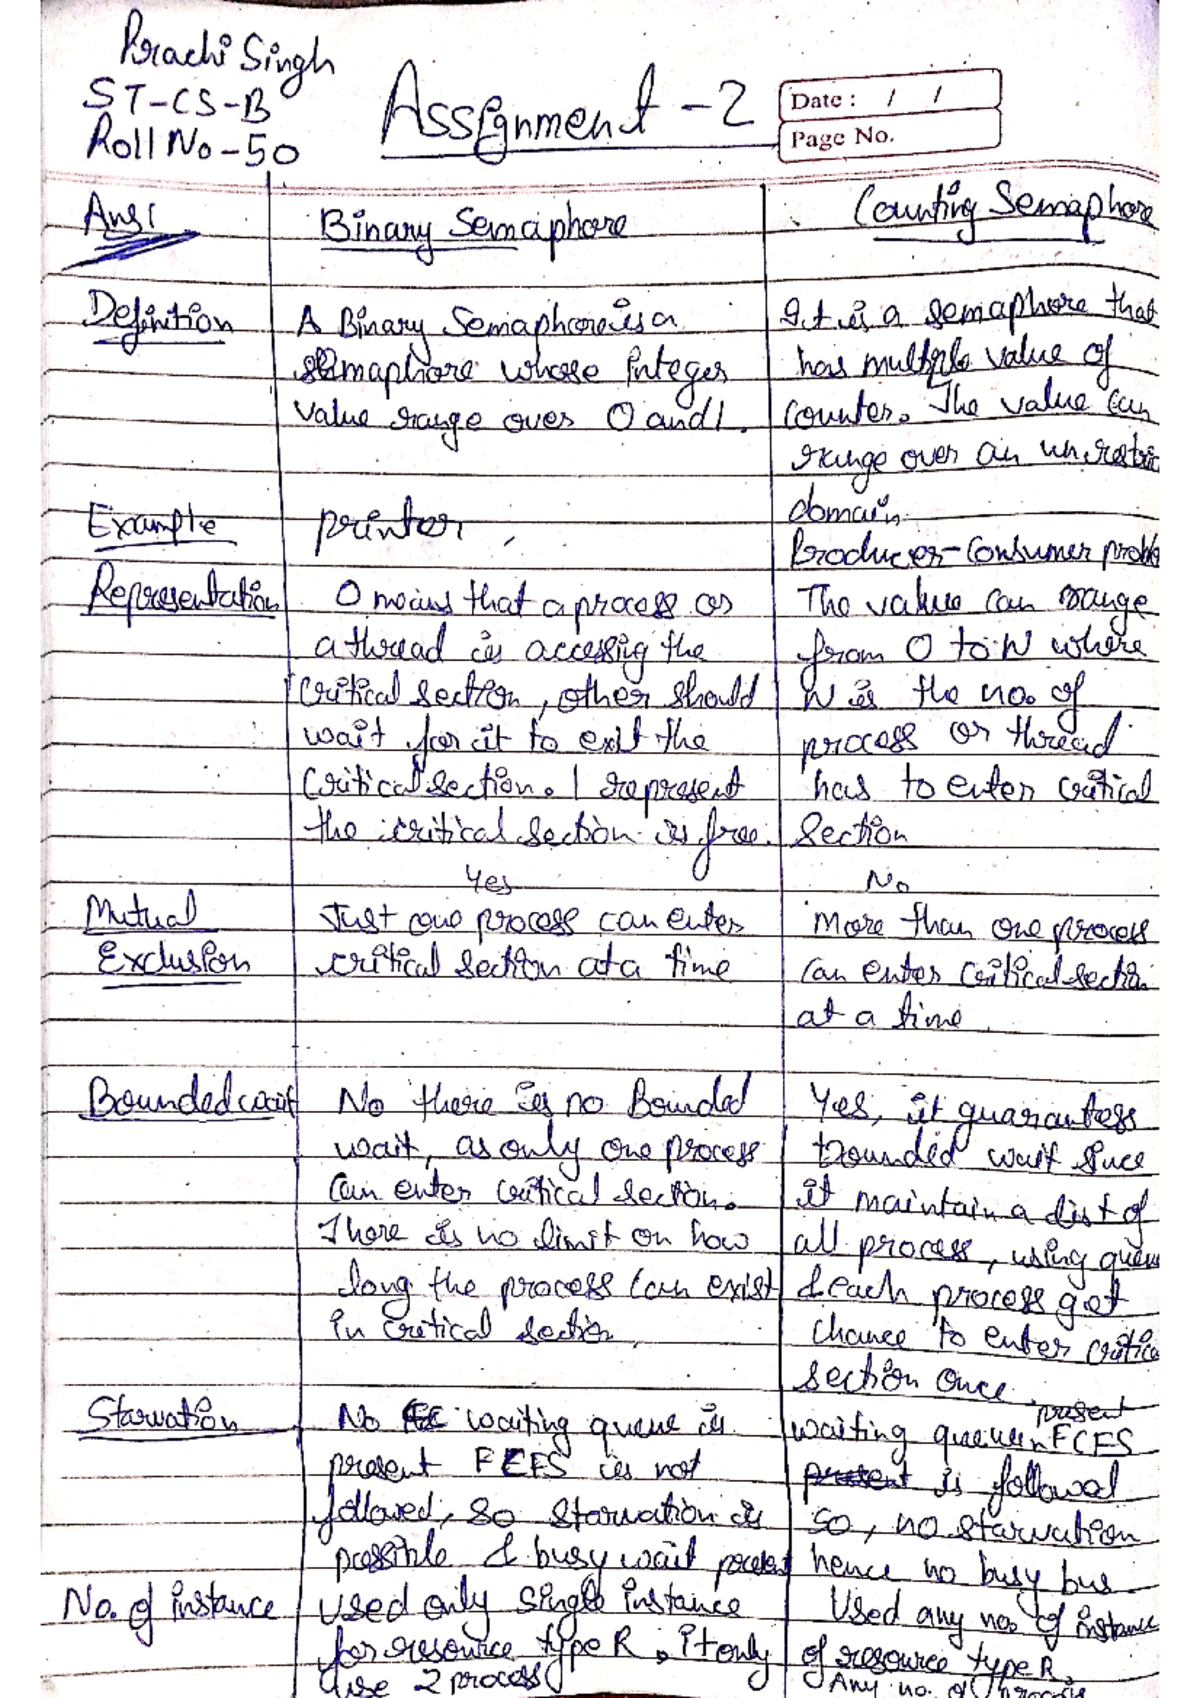 Prachi Singh
ST-CS-B
Roll No-50
Assignment-2
Date : / /
Page No.
Ans1
Binary Semaphore
Counting Semaphore
Definition
A Binary Semaphore is a
semaphore whose integer
value range over 0 and 1.
It is a semaphore that
has multiple value of
counter. The value can
range over an unrestric
domain.
Example
printer,
Producer-Consumer proble
Representation
0 means that a process or
a thread is accessing the
critical section, other should
wait for it to exit the
critical section. 1 represent
the critical section is free.
The value can range
from 0 to N where
N is the no. of
process or thread
has to enter critical
Section
Mutual
Exclusion
Yes
Just one process can enter
critical section at a time
No
More than one process
can enter critical section
at a time
Bounded wait
No there is no Bounded
wait, as only one process
can enter critical section.
There is no limit on how
long the process can exist
in critical section.
Yes, it guarantess
bounded wait since
it maintain a list of
all process, using queue
& each process get
chance to enter critica
section once.
Starvation
No waiting queue is
present FCFS is not
followed, so starvation is
possible & busy wait present
present
waiting queue FCFS
is followed
so, no starvation
hence no busy bus
No. of instance
used only single instance
for resource type R. it only
use 2 process
Used any no. of instance
of resource type R.
Any no. of process